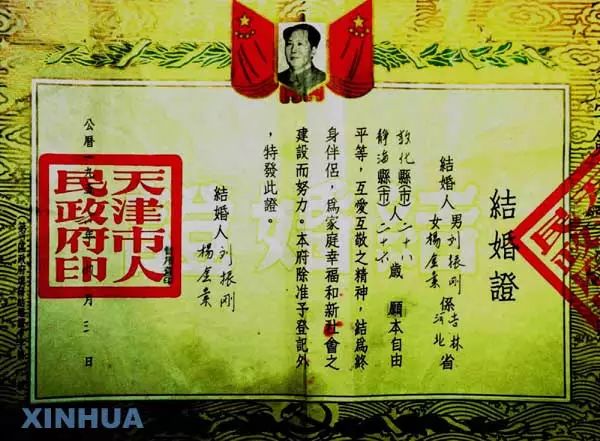 結婚證
結婚人男刘振剛係吉林省
女楊金素河北
敦化縣(市)人二十八歲願本自由
靜海縣(市)二十六
平等,互愛互敬之精神,結爲終
身伴侶,爲家庭幸福和新社會之
建設而努力。本府除准予登記外
,特發此證。
結婚人刘振剛
楊金素
公曆一九五
年
月二日
天津市人
民政府印
結婚
XINHUA